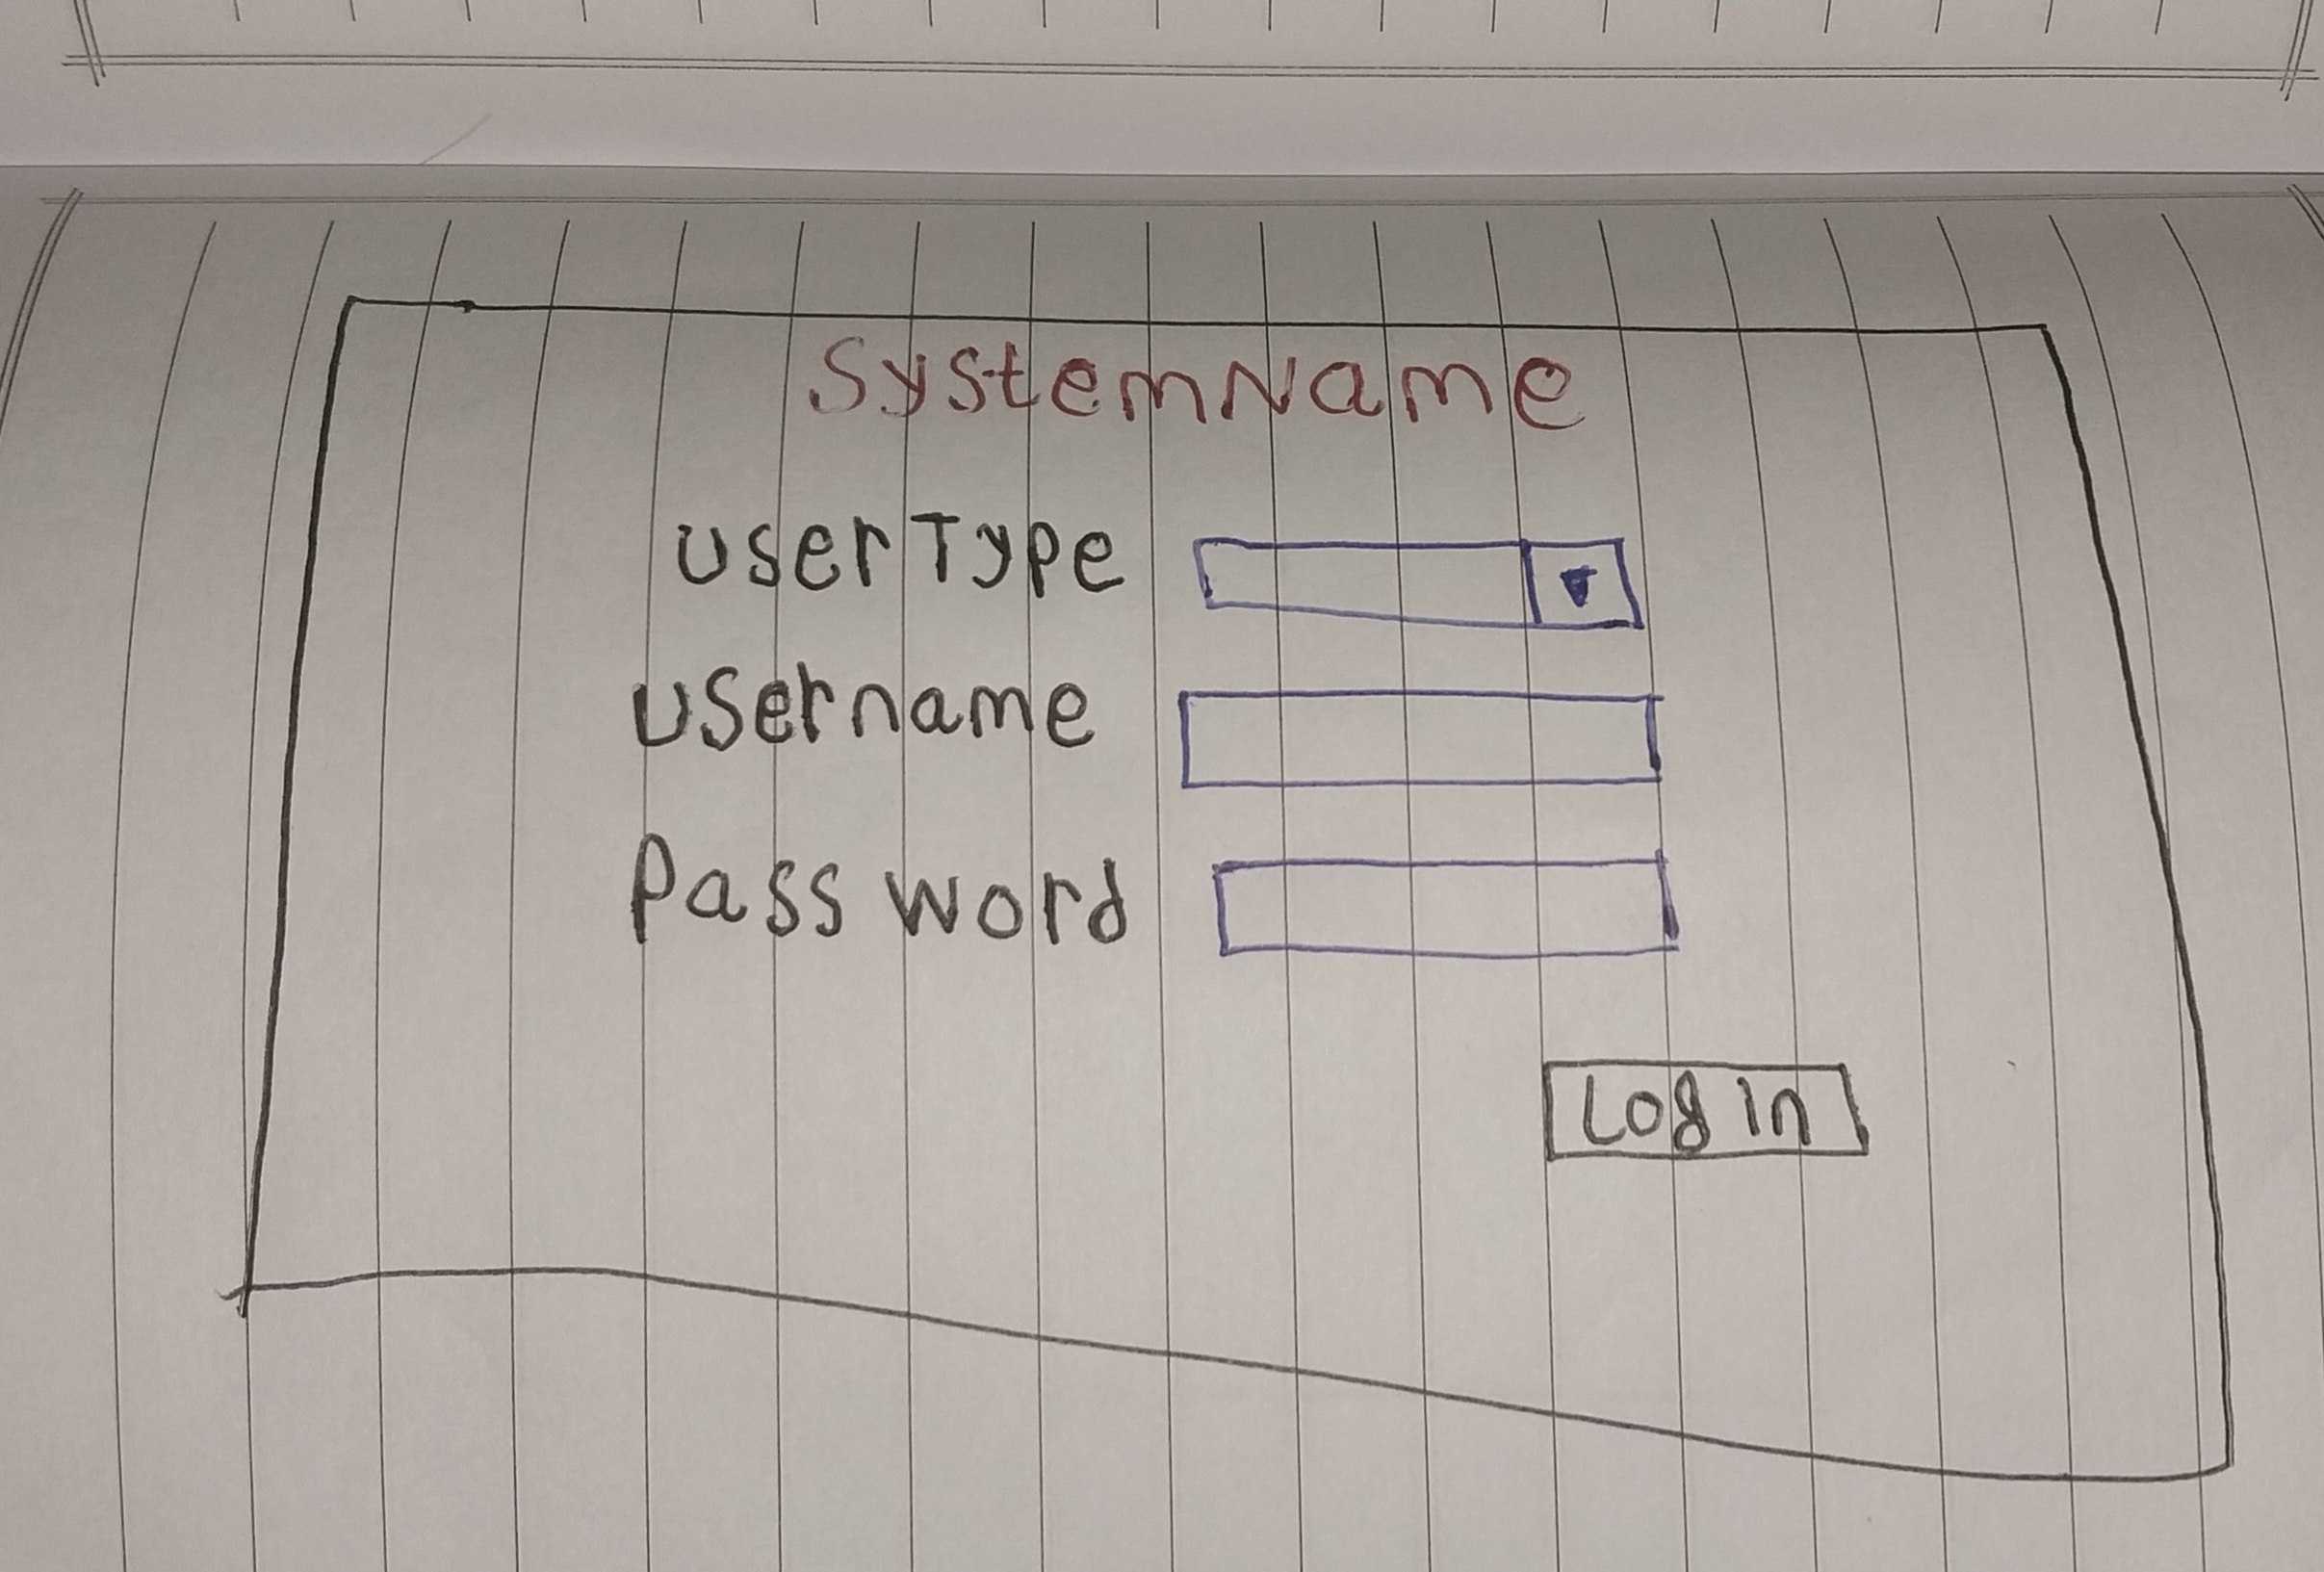 SystemName
User Type
Username
Password
Log in